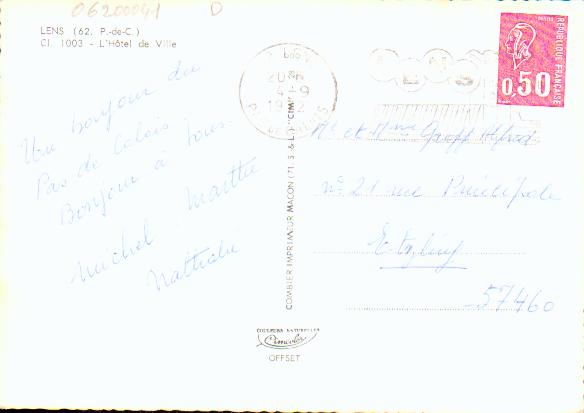 06200041 D
LENS (62. P.-de-C.)
Cl. 1003 - L'Hôtel de Ville
Un bonjour du
Pas de Calais
Bonjour à tous.
Michel Marthe
Nathalie
COMBIER IMPRIMEUR MACON (71. S. & L.)
COULEURS NATURELLES
Cimcolor
OFFSET
REPUBLIQUE FRANÇAISE
0,50
20
4-9
PAS DE CALAIS
Mr et Mme Geoff Alfred
n° 21 rue Principale
Etzling
57460